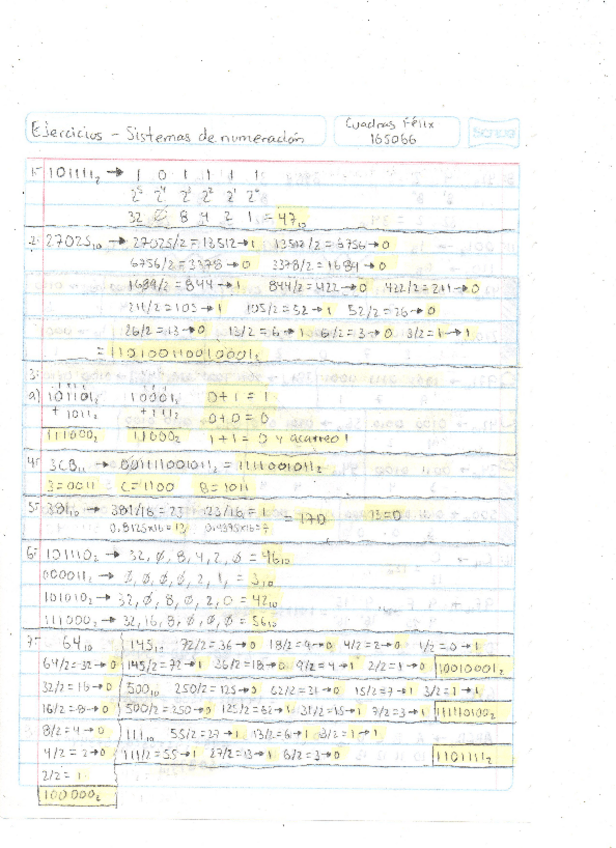 Ejercicios - Sistemas de numeración
Cuadras Félix
165066
1- 101111₂ → 1 0 1 1 1 1
2⁵ 2⁴ 2³ 2² 2¹ 2⁰
32 0 8 4 2 1 = 47₁₀
2- 27025₁₀ → 27025/2=13512→1 13512/2=6756→0
6756/2=3378→0 3378/2=1689→0
1689/2=844→1 844/2=422→0 422/2=211→0
211/2=105→1 105/2=52→1 52/2=26→0
26/2=13→0 13/2=6→1 6/2=3→0 3/2=1→1
= 110100110010001₂
3-
a) 101101₂ 10001₂ 0+1=1
+ 1011₂ + 111₂ 0+0=0
111000₂ 11000₂ 1+1=0 y acarreo 1
4- 3CB₁₆ → 001111001011₂ = 1111001011₂
3=0011 C=1100 B=1011
5- 381₁₀ → 381/16=23 23/16=1 = 17D 13=D
0.8125x16=13 0.4375x16=7
6- 101110₂ → 32,Ø,8,4,2,Ø = 46₁₀
000011₂ → Ø,Ø,Ø,Ø,2,1, = 3₁₀
101010₂ → 32,Ø,8,Ø,2,0 = 42₁₀
111000₂ → 32,16,8,Ø,Ø,Ø = 56₁₀
7- 64₁₀ 145₁₀ 72/2=36→0 18/2=9→0 4/2=2→0 1/2=0→1
64/2=32→0 145/2=72→1 36/2=18→0 9/2=4→1 2/2=1→0 10010001₂
32/2=16→0 500₁₀ 250/2=125→0 62/2=31→0 15/2=7→1 3/2=1→1
16/2=8→0 500/2=250→0 125/2=62→1 31/2=15→1 7/2=3→1 111110100₂
8/2=4→0 111₁₀ 55/2=27→1 13/2=6→1 3/2=1→1
4/2=2→0 111/2=55→1 27/2=13→1 6/2=3→0 1101111₂
2/2=1
100000₂